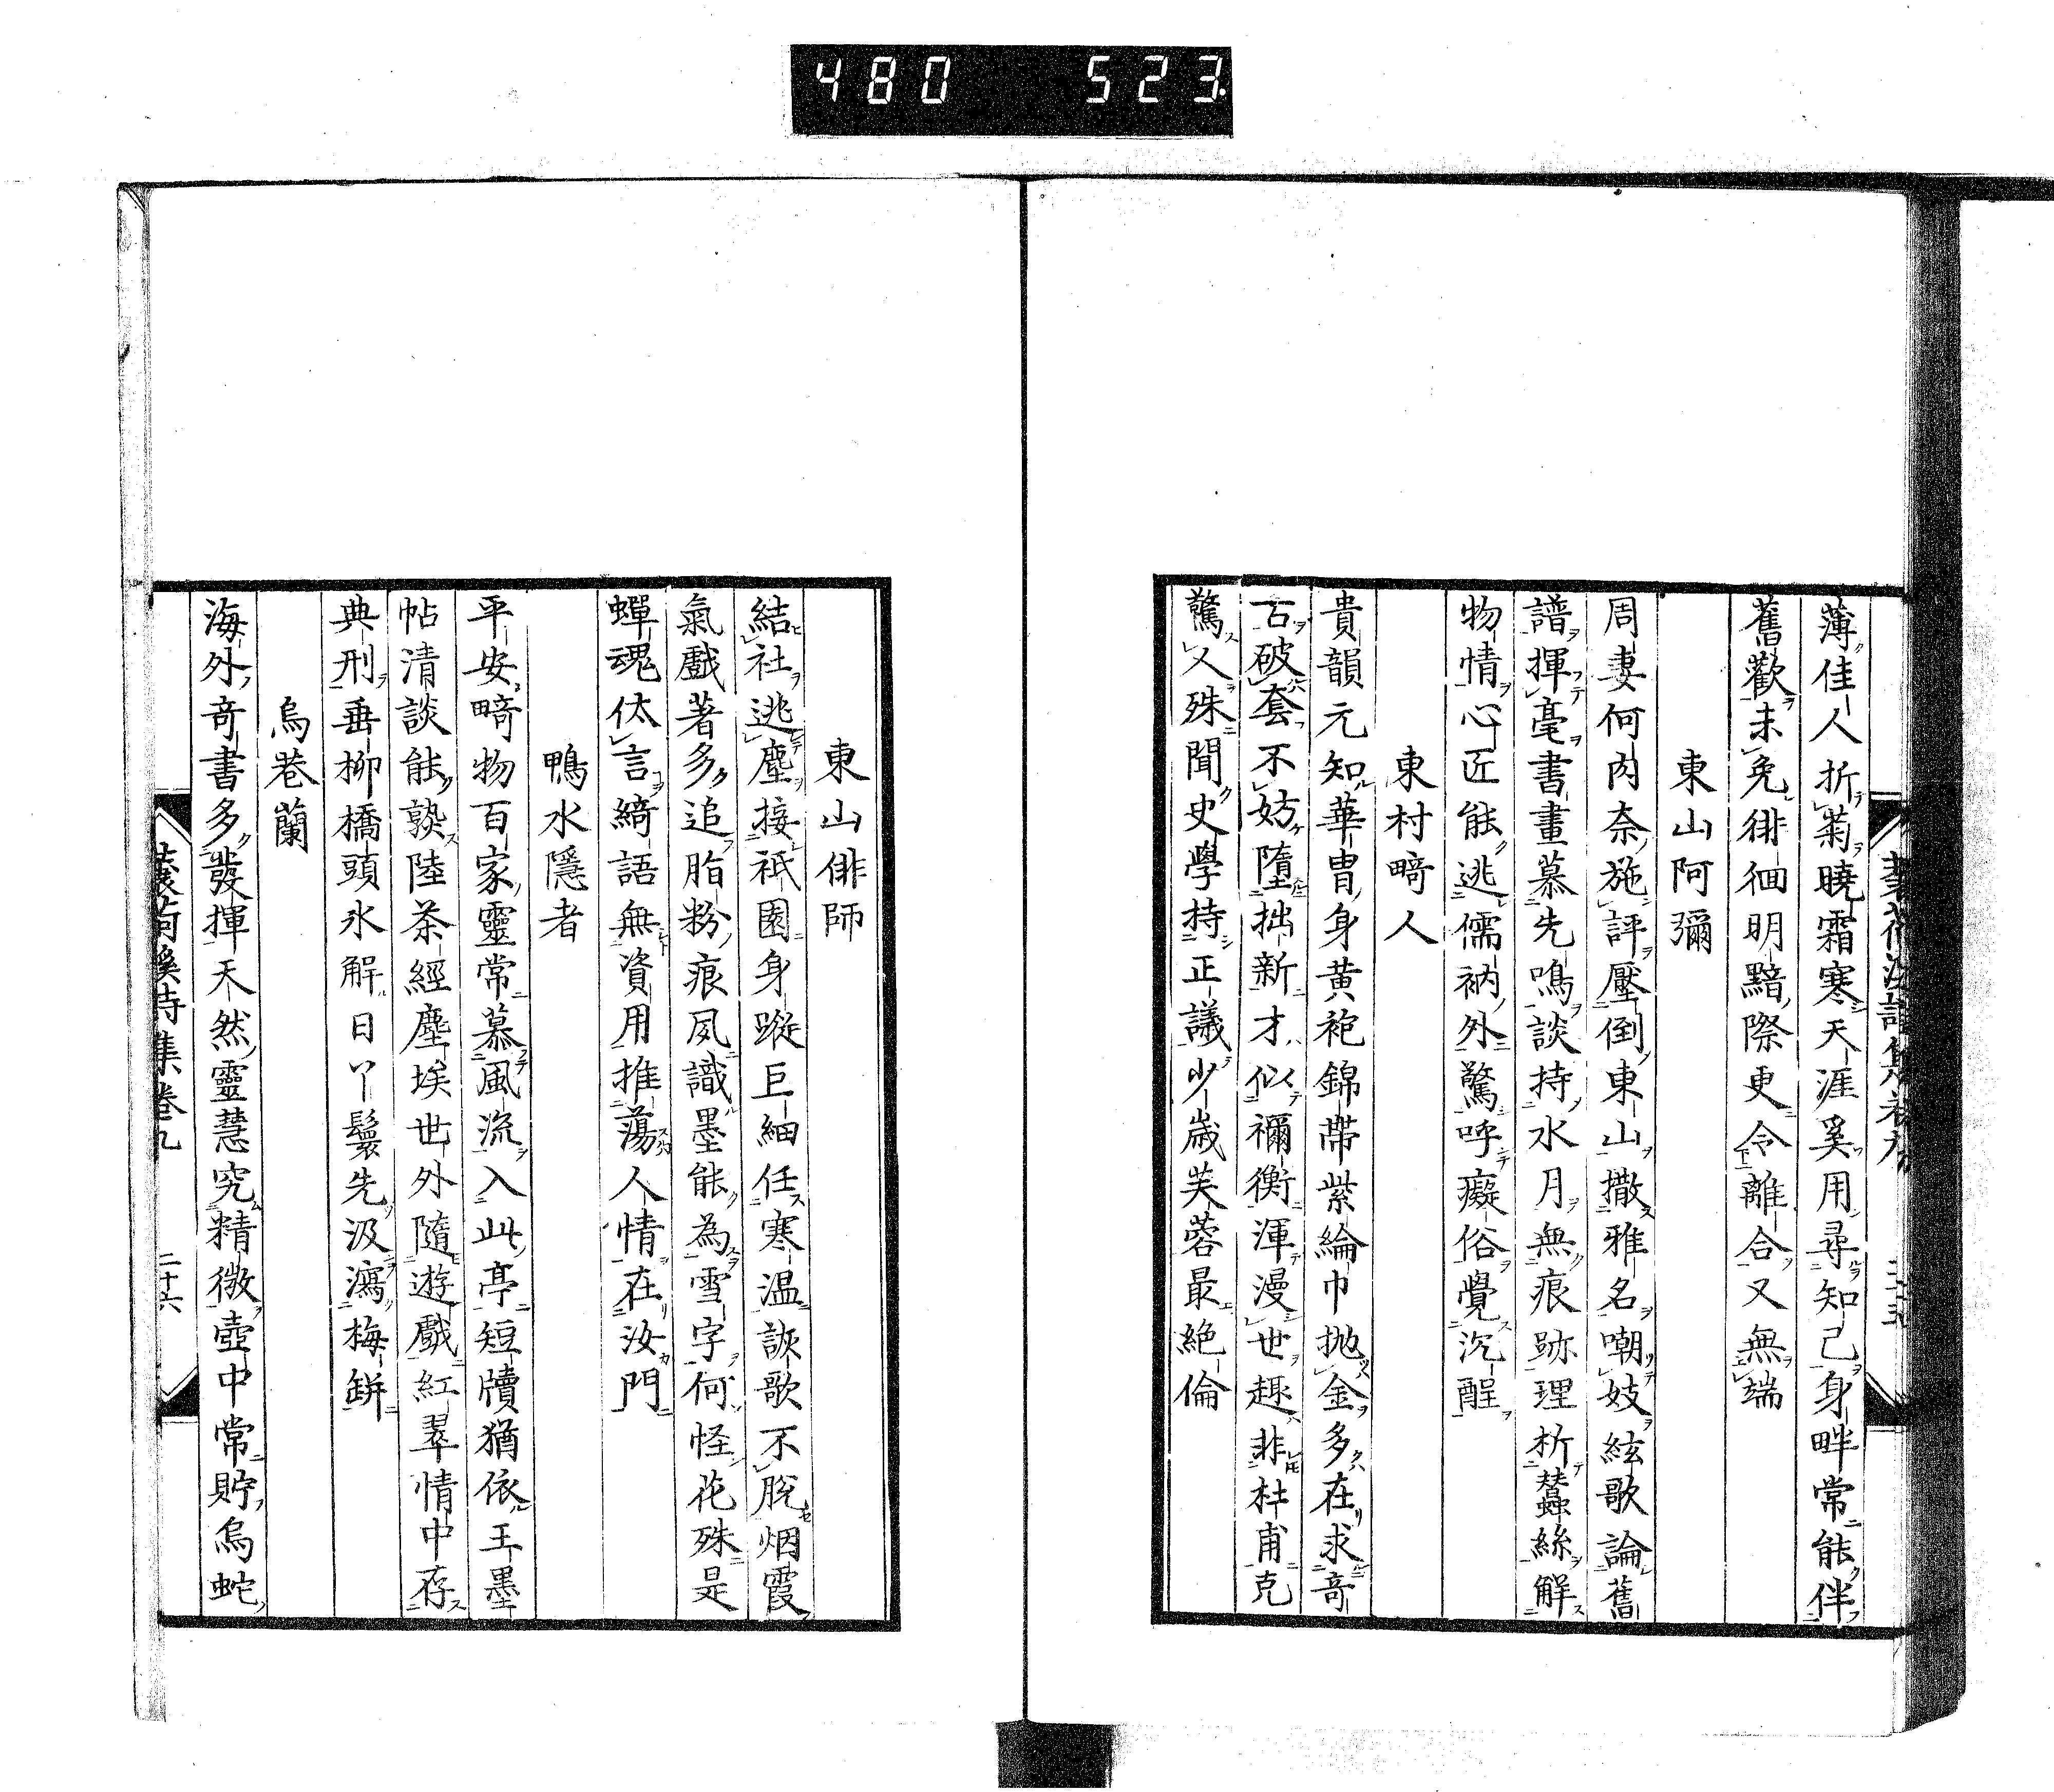 480 523
薄佳人折菊曉霜寒天涯奚用尋知己身畔常能伴
舊歡未免徘徊明黯際更令離合又無端
東山阿彌
周妻何肉奈施評壓倒東山撒雅名嘲妓絃歌論舊
譜揮毫書畫慕先鳴談持水月無痕跡理析蠶絲解
物情心匠能逃儒衲外驚呼癡俗覺沉酲
東村畸人
貴韻元知華冑身黄袍錦帶紫綸巾拋金多在求奇
古破套不妨墮拙新才似禰衡渾漫世趣非杜甫克
驚人殊聞史學持正議少歲芙蓉最絕倫
東山俳師
結社逃塵接祇園身蹤巨細任寒温詼歌不脫烟霞
氣戲著多追脂粉痕夙識墨能為雪字何怪花殊是
蟬魂休言綺語無資用推蕩人情在汝門
鴨水隱者
平安畸物百家靈常慕風流入此亭短牘猶依王墨
帖清談能熟陸茶經塵埃世外隨遊戲紅翠情中存
典刑垂柳橋頭氷解日丫鬟先汲瀉梅缾
烏巷蘭
海外奇書多發揮天然靈慧究精微壺中常貯烏蛇
詩集卷九 二十六